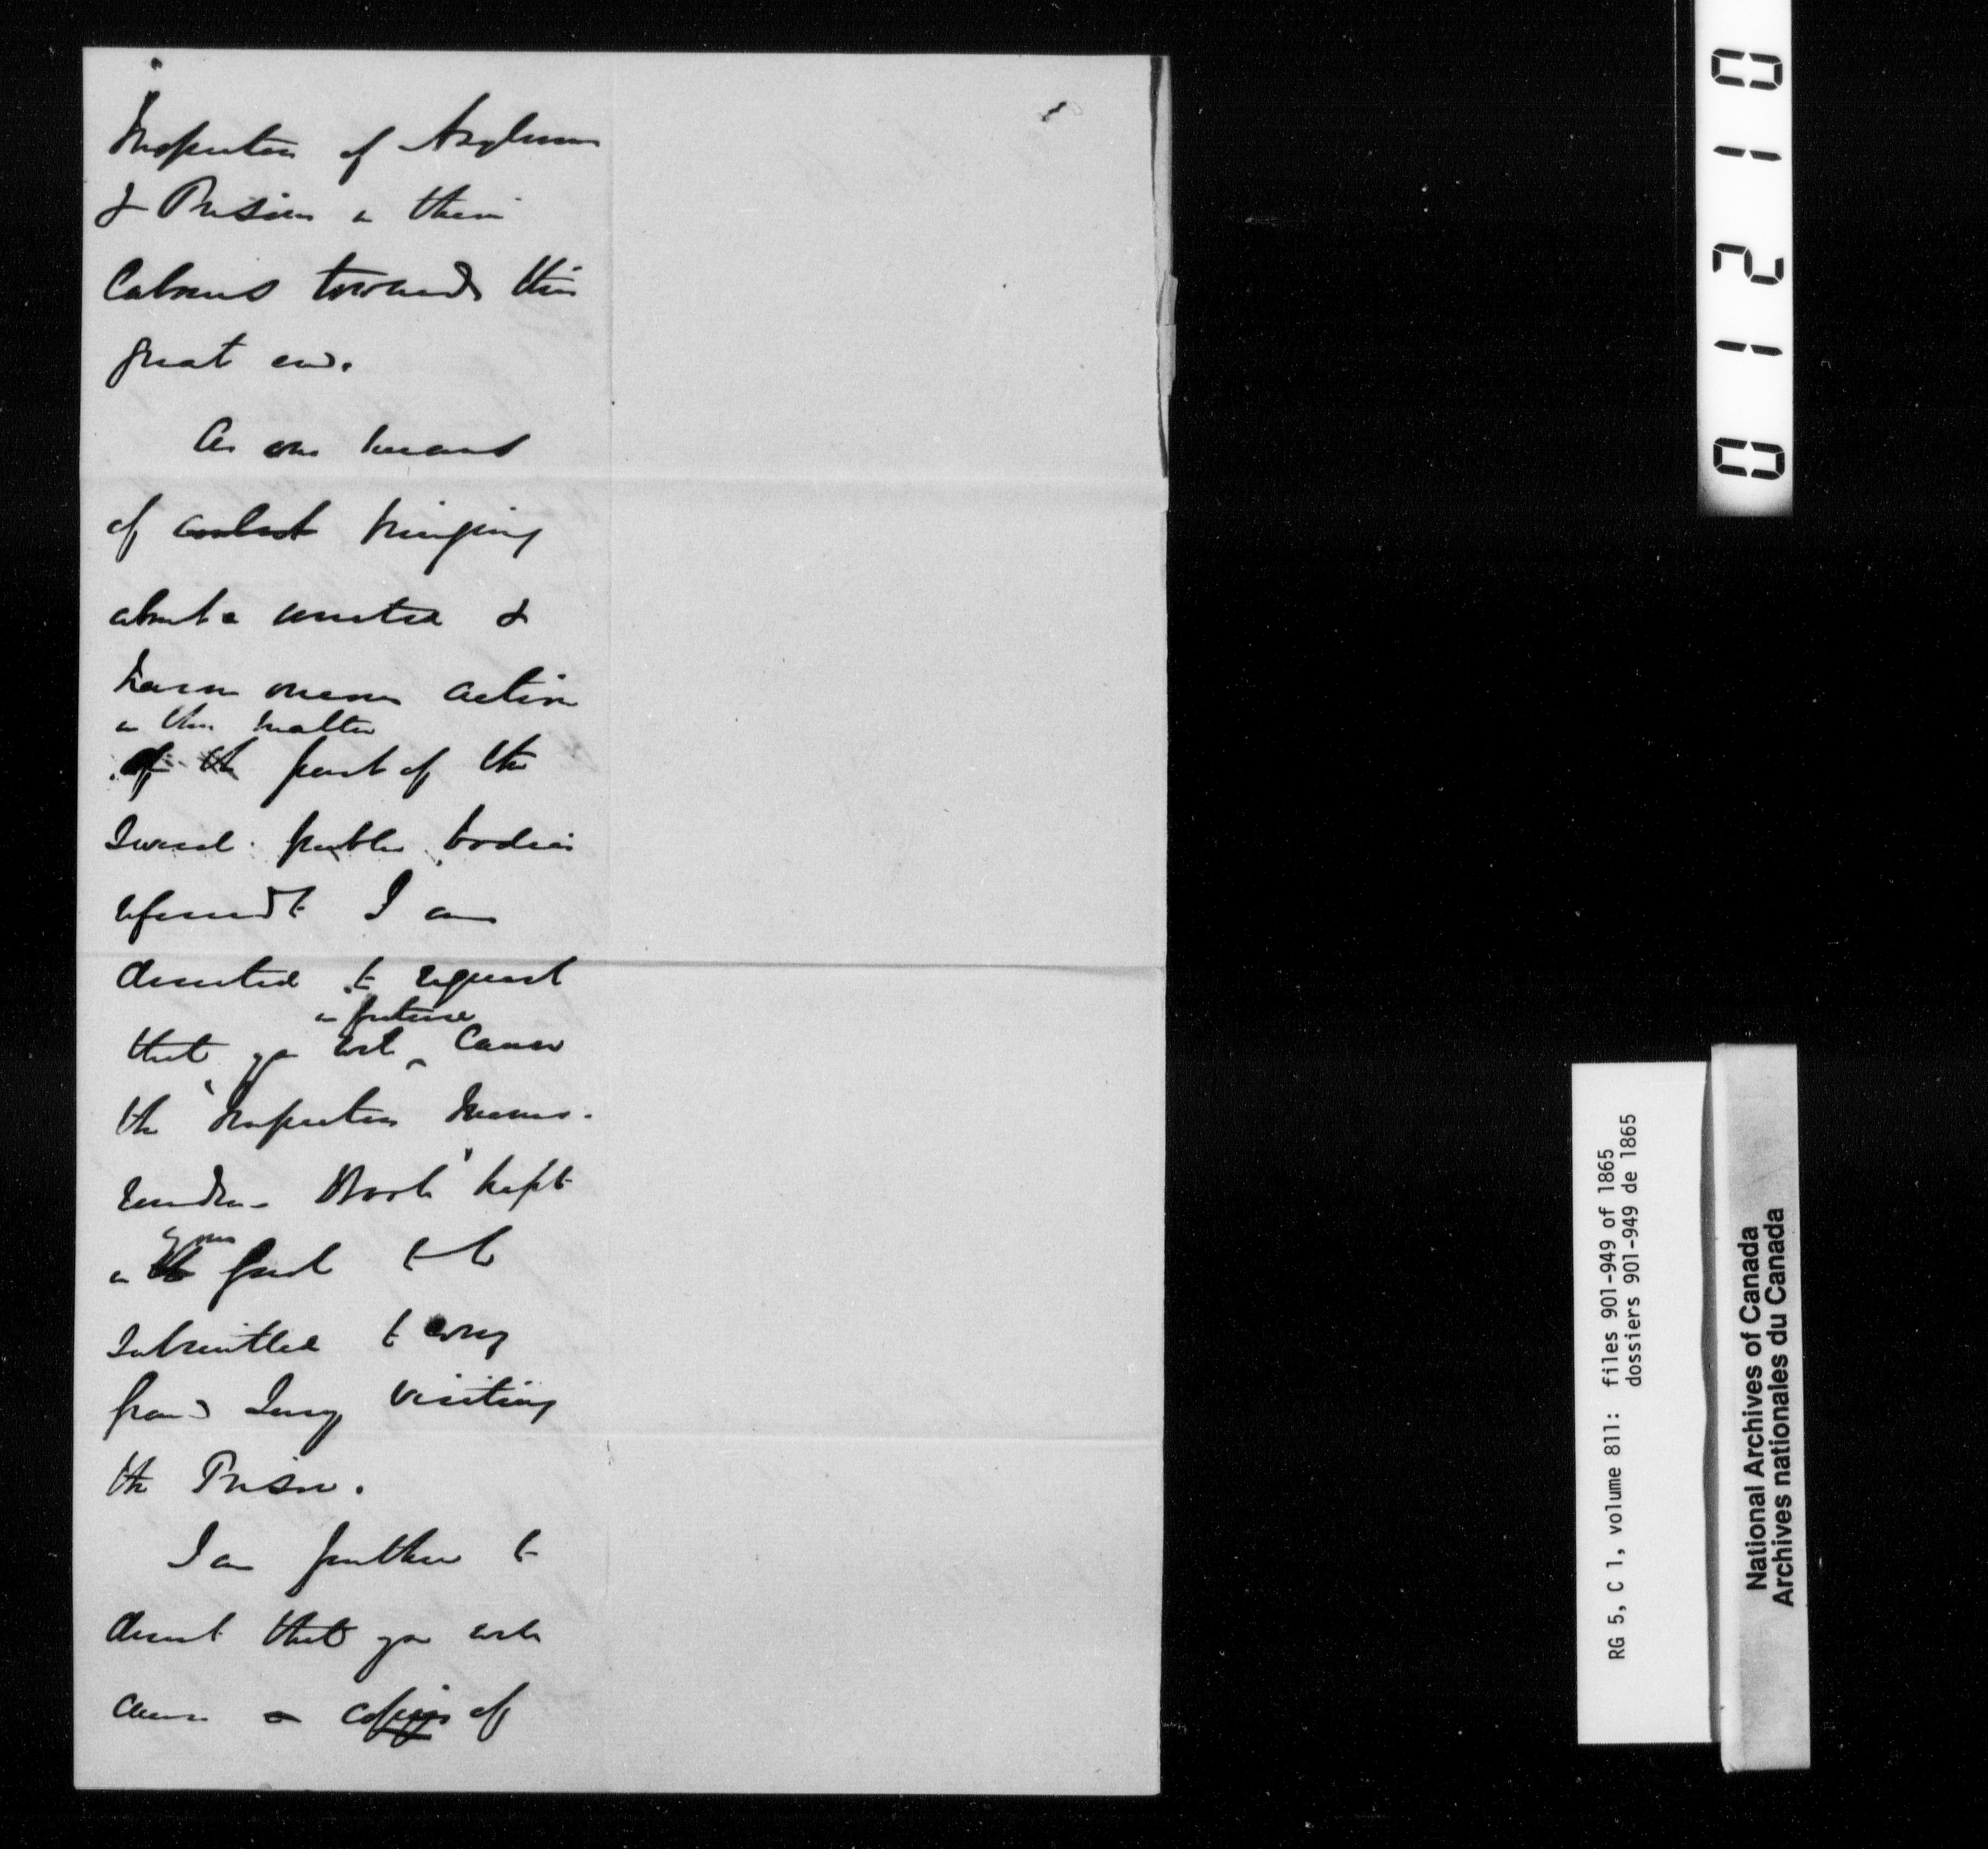 Inspectors of Asylums
& Prisons in their
labours towards this
great end.
As one means
of bringing
about a united &
harmonious action
in this matter
of the part of the
several public bodies
referred to I am
directed to request
in future
that you will cause
the "Inspectors Memo-
randum Book" kept
your
in the gaol to be
submitted to every
Grand Jury visiting
the Prison.
I am further to
direct that you will
cause a copy of
01210
RG 5, C 1, volume 811: files 901-949 of 1865
dossiers 901-949 de 1865
National Archives of Canada
Archives nationales du Canada